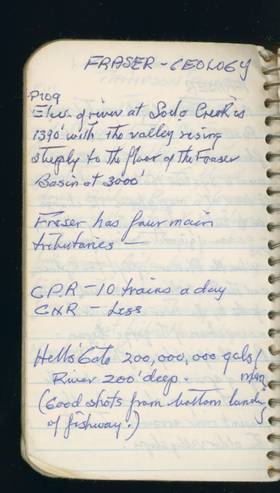 FRASER - GEOLOGY
P109
Elev. of river at Soda Creek is
1390' with the valley rising
steeply to the floor of the Fraser
Basin at 3000'
Fraser has four main
tributaries —
C.P.R - 10 trains a day
CNR - Less
Hell's Gate 200,000,000 gals/
min
River 200' deep.
(Good shots from bottom landing
of fishway.)